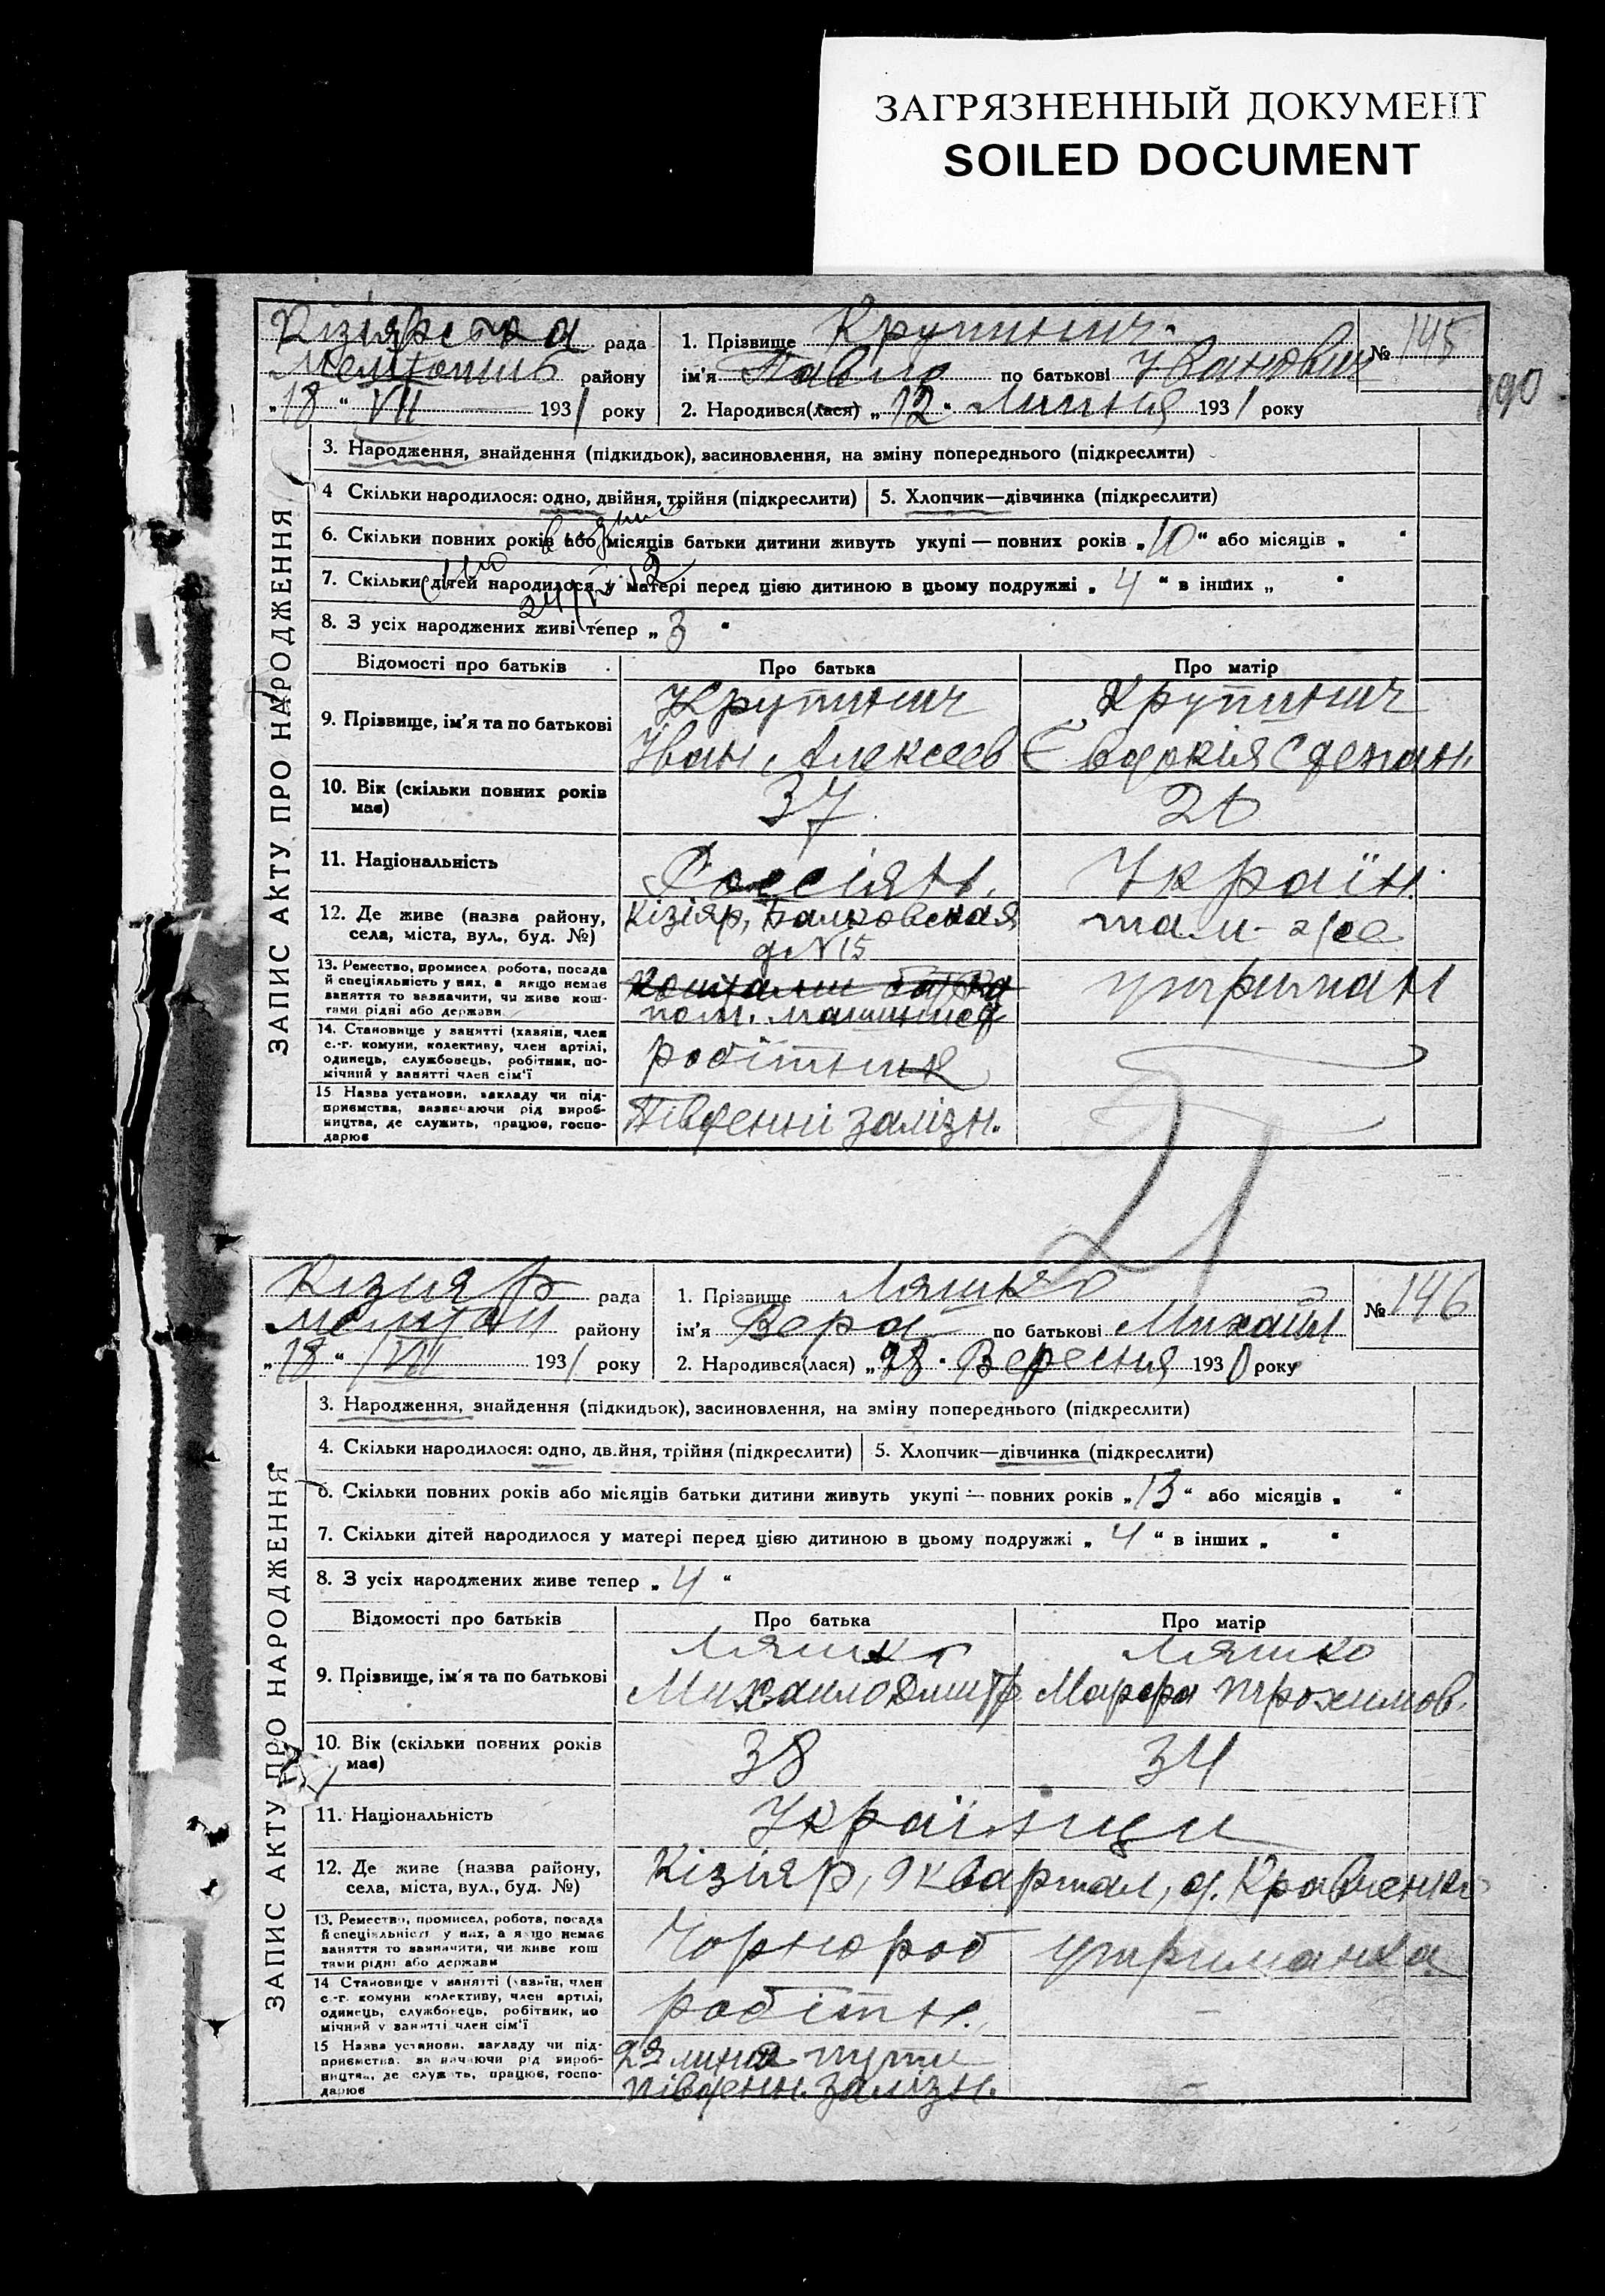 ЗАГРЯЗНЕННЫЙ ДОКУМЕНТ
SOILED DOCUMENT
190
ЗАПИС АКТУ ПРО НАРОДЖЕННЯ
Кізіярська рада
Мелітопшь району
„18“ VII 1931 року
1. Прізвище Крупинич
ім'я Павло по батькові Іванович
№ 145
2. Народився(лася) „12“ Липня 1931 року
3. Народження, знайдення (підкидьок), засиновлення, на зміну попереднього (підкреслити)
4 Скільки народилося: одно, двійня, трійня (підкреслити) 5. Хлопчик—дівчинка (підкреслити)
6. Скільки повних років або місяців батьки дитини живуть укупі — повних років „10“ або місяців „ “
7. Скільки дітей народилося у матері перед цією дитиною в цьому подружжі „4“ в інших „ “
8. З усіх народжених живі тепер „3“
Відомості про батьків Про батька Про матір
9. Прізвище, ім'я та по батькові
Крупинич
Іван Алексеев
Крупинич
Євдокія Степан.
10. Вік (скільки повних років має)
37
26
11. Національність
Россіян.
Україн.
12. Де живе (назва району, села, міста, вул., буд. №)
Кізіяр,
д №15
там-же
13. Ремество, промисел, робота, посада й спеціяльність у них, а якщо немає заняття то зазначити, чи живе коштами рідні або держави
пом. машинист
утриман
14. Становище у занятті (хазяїн, член с.-г. комуни, колективу, член артілі, одинець, службовець, робітник, помічний у занятті член сім'ї
робітник
15 Назва установи, закладу чи підприємства, зазначаючи рід виробництва, де служить, працює, господарює
Південні залізн.
21
ЗАПИС АКТУ ПРО НАРОДЖЕННЯ
Кізияр рада
Мелитоп району
„18“ VII 1931 року
1. Прізвище Ляшко
ім'я Вера по батькові Михайл
№ 146
2. Народився(лася) „28“ Вересня 1930 року
3. Народження, знайдення (підкидьок), засиновлення, на зміну попереднього (підкреслити)
4. Скільки народилося: одно, двійня, трійня (підкреслити) 5. Хлопчик—дівчинка (підкреслити)
6. Скільки повних років або місяців батьки дитини живуть укупі — повних років „13“ або місяців „ “
7. Скільки дітей народилося у матері перед цією дитиною в цьому подружжі „4“ в інших „ “
8. З усіх народжених живе тепер „4“
Відомості про батьків Про батька Про матір
9. Прізвище, ім'я та по батькові
Ляшко
Михаило Дмитр
Ляшко
Марфа Трохимов.
10. Вік (скільки повних років має)
38
34
11. Національність
Українци
12. Де живе (назва району, села, міста, вул., буд. №)
Кізіяр, 9 квартал, д. Кравченко
13. Ремество, промисел, робота, посада й спеціяльність у них, а якщо немає заняття то зазначити, чи живе коштами рідні або держави
Чорнороб
утриманка
14 Становище у занятті (хазяїн, член с.-г. комуни колективу, член артілі, одинець, службовець, робітник, помічний у занятті член сім'ї
робітн.
15 Назва установи, закладу чи підприємства, зазначаючи рід виробництва, де служить, працює, господарює
пути
південн. залізн.